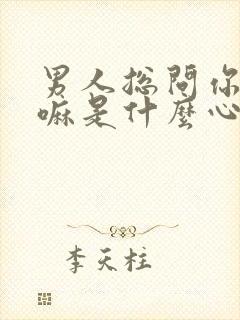 男人总问你
嘛是什麼心
李天柱